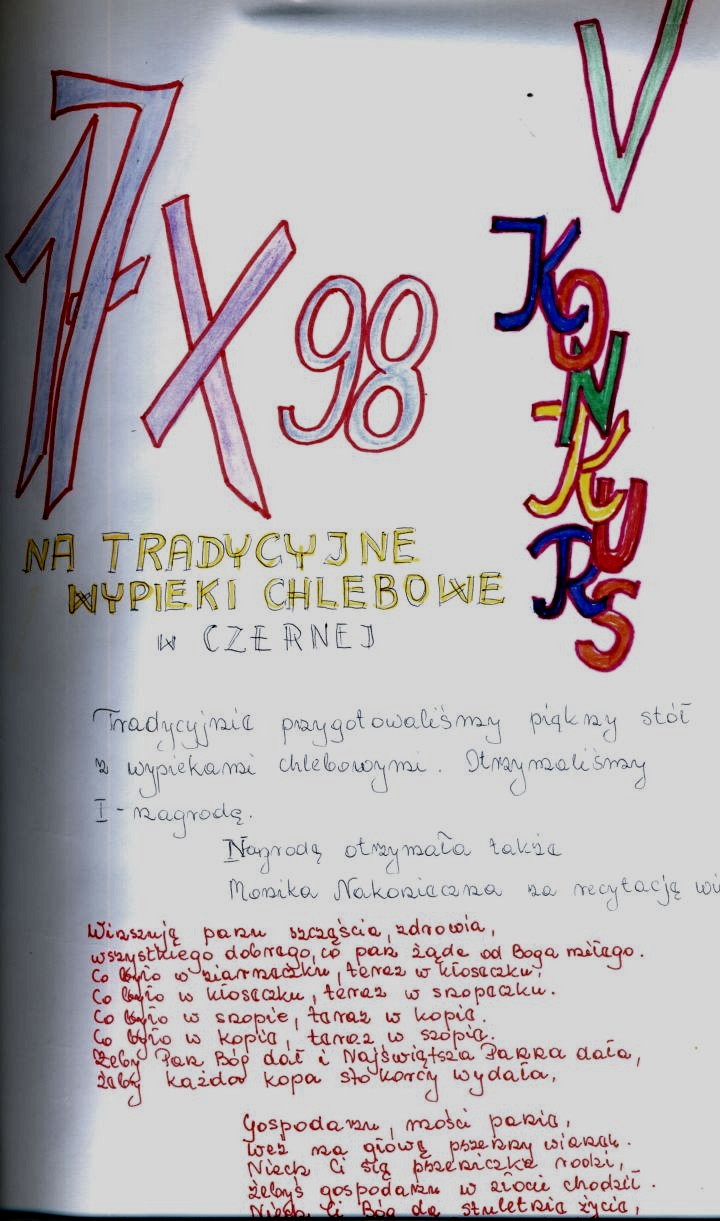 17 X 98
V
KON-
KURS
NA TRADYCYJNE
WYPIEKI CHLEBOWE
W CZERNEJ
Tradycyjnie przygotowaliśmy piękny stół
z wypiekami chlebowymi. Otrzymaliśmy
I-nagrodę.
Nagrodę otrzymała także
Monika Nakonieczna za recytację
Winszuję panu szczęścia, zdrowia,
wszystkiego dobrego, co pan żąda od Boga miłego.
Co było w ziarneczku, teraz w kłoseczku,
Co było w kłoseczku, teraz w snopeczku.
Co było w snopie, teraz w kopie.
Co było w kopie, teraz w szopie.
Żeby Pan Bóg dał i Najświętsza Panna dała,
żeby każda kopa sto korcy wydała,
Gospodarzu, mości panie,
weź na głowę pszenny wianek.
Niech Ci się pszeniczka rodzi,
żebyś gospodarzu w złocie chodził.
Niech Ci Bóg da stuletnie życie,